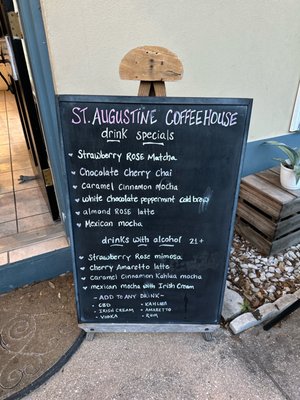 ST. AUGUSTINE COFFEEHOUSE
drink specials
Strawberry Rose Matcha
Chocolate Cherry Chai
Caramel Cinnamon Mocha
White Chocolate Peppermint cold brew
almond Rose latte
Mexican mocha
drinks with alcohol 21+
Strawberry Rose mimosa
cherry Amaretto latte
caramel Cinnamon Kahlua mocha
mexican mocha with Irish Cream
~ ADD TO ANY DRINK~
• CBD • KAHLUA
• IRISH CREAM • AMARETTO
• VODKA • RUM